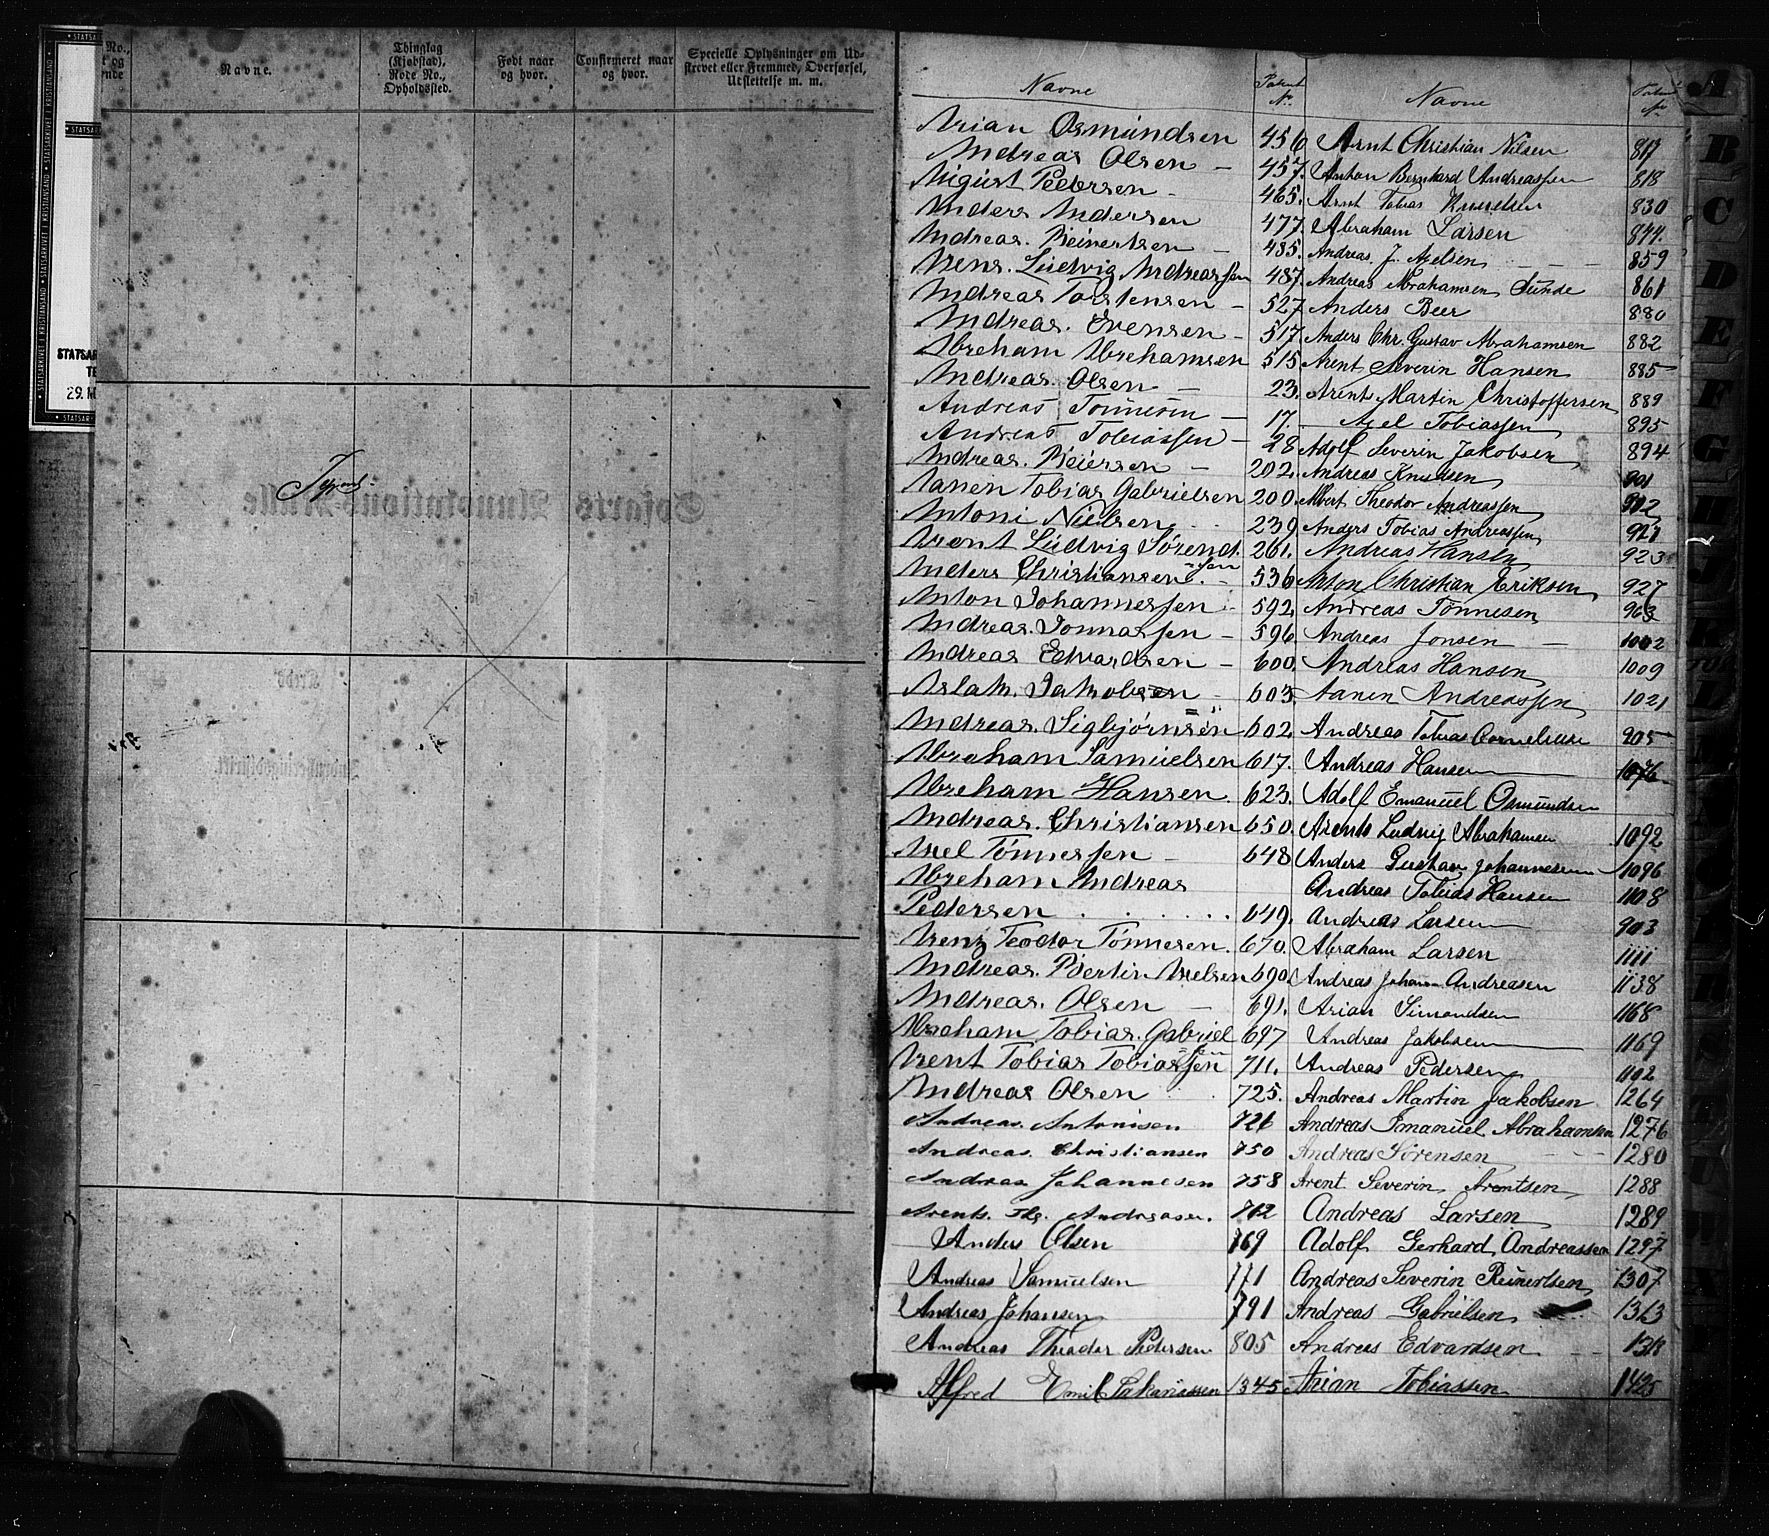 No.,
og
ende
Navne.
Thinglag
(Kjøbstad),
Rode No.,
Opholdssted.
Født naar
og hvor.
Confirmeret naar
og hvor.
Specielle Oplysninger om Ud-
skrevet eller Fremmed, Overførsel,
Udslettelse m. m.
STATSARKIVET I KRISTIANSAND
29.
Navne
Patent
No.
Arian Osmundsen 456
Andreas Olsen — 457.
August Pedersen - 465.
Anders Andersen 477.
Andreas Reinertsen — 485.
Arens. Ludvig Andreassen 487.
Andreas Torstensen — 527
Andreas. Evensen — 517.
Abreham Abrehamsen 515
Andreas. Olsen — 23.
Andreas Tønnesen — 17.
Andreas Tobiassen — 28
Andreas. Reiersen — 202.
Aanen Tobias Gabrielsen 200
Antoni Nielsen 239
Arent Ludvig Sørend. 261.
=sen
Anders Christiansen - 536
Anton Johannessen - 592.
Andreas. Jonnassen — 596
Andreas Edvardsen — 600.
Aslak. Jakobsen - 603.
Andreas Sigbjørnsen 602
Abreham Samuelsen 617.
Abreham Hansen. 623.
Andreas. Christiansen 650.
Axel Tønnessen - 648
Abreham Andreas
Pedersen . . . . . . 649.
Arenz Teodor Tønnesen. 670.
Andreas. Bertin Axelsen 690.
Andreas. Olsen — 691.
Abreham Tobias. Gabriel 697
=sen
Arent Tobias Tobiassen 711.
Andreas Olsen 725.
Andreas. Antonisen 726
Andreas. Christiansen 750
Andreas Johannesen 758
Arents. Andreasen. 762
Anders Olsen 769
Andreas Samuelsen 771
Andreas Johansen 791
Andreas Theodor Pedersen 805
Alfred Emil Sakariassen 1345
Navne
Patent
No.
Arnt Christian Nilsen 817
Anton Bernhard Andreassen 818
Arnt Tobias Knudsen 830
Abraham Larsen 844.
Andreas. J. Axelsen 859
Andreas Abrahamsen Sunde 861
Anders Beer 880
Anders Chr. Gustav Abrahamsen 882
Arent Severin Hansen 885
Arent Martin Christoffersen 889
Axel Tobiassen 895
Adolf Severin Jakobsen 894
Andreas Knudsen 901
Albert Theodor Andreassen 912
Anders Tobias Andreassen 921
Andreas Hansen 923
Anton Christian Eriksen 927
Andreas Tønnesen 963
Andreas Jonsen — 1002
Andreas Hansen 1009
Aanen Andreassen 1021
Andreas Tobias Corneliusen 905
Andreas Hansen 1076
Adolf Emanuel Osmundsen
Arents Ludvig Abrahamsen 1092
Anders Gustav Johannesen 1096
Andreas Tobias Hansen 1108
Andreas Larsen 903
Abraham Larsen 1111
Andreas Johan Andreasen 1138
Arian Simondsen 1168
Andreas Jakobsen 1169
Andreas Pedersen 1102
Andreas Martin Jakobsen 1264
Andreas Emanuel Abrahamsen 1276
Andreas Sørensen 1280
Arent Severin Arentsen 1288
Andreas Larsen 1289
Adolf Gerhard Andreassen 1297
Andreas Severin Reinertsen 1307
Andreas Gabrielsen 1363
Andreas Edvardsen
Arian Tobiassen 1425
A
B
C
D
E
F
G
H